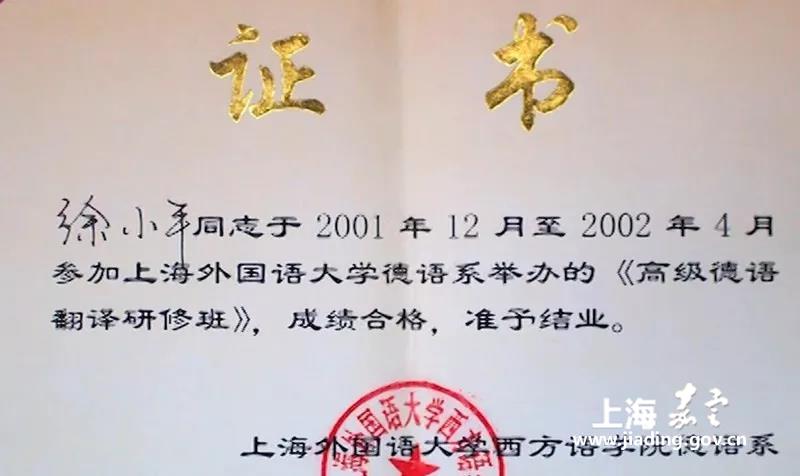 证 书
徐小平同志于 2001 年 12 月至 2002 年 4 月
参加上海外国语大学德语系举办的《高级德语
翻译研修班》，成绩合格，准予结业。
国语大学西
上海外国语大学西方语学院德语系
上海嘉定
www.jiading.gov.cn